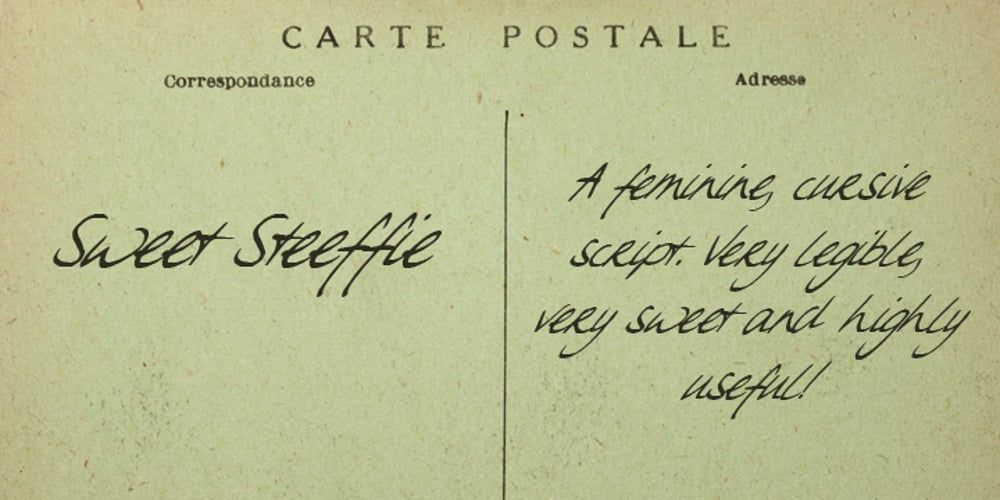 CARTE POSTALE
Correspondance
Adresse
Sweet Steeffie
A feminine, cursive
script. Very legible,
very sweet and highly
useful!